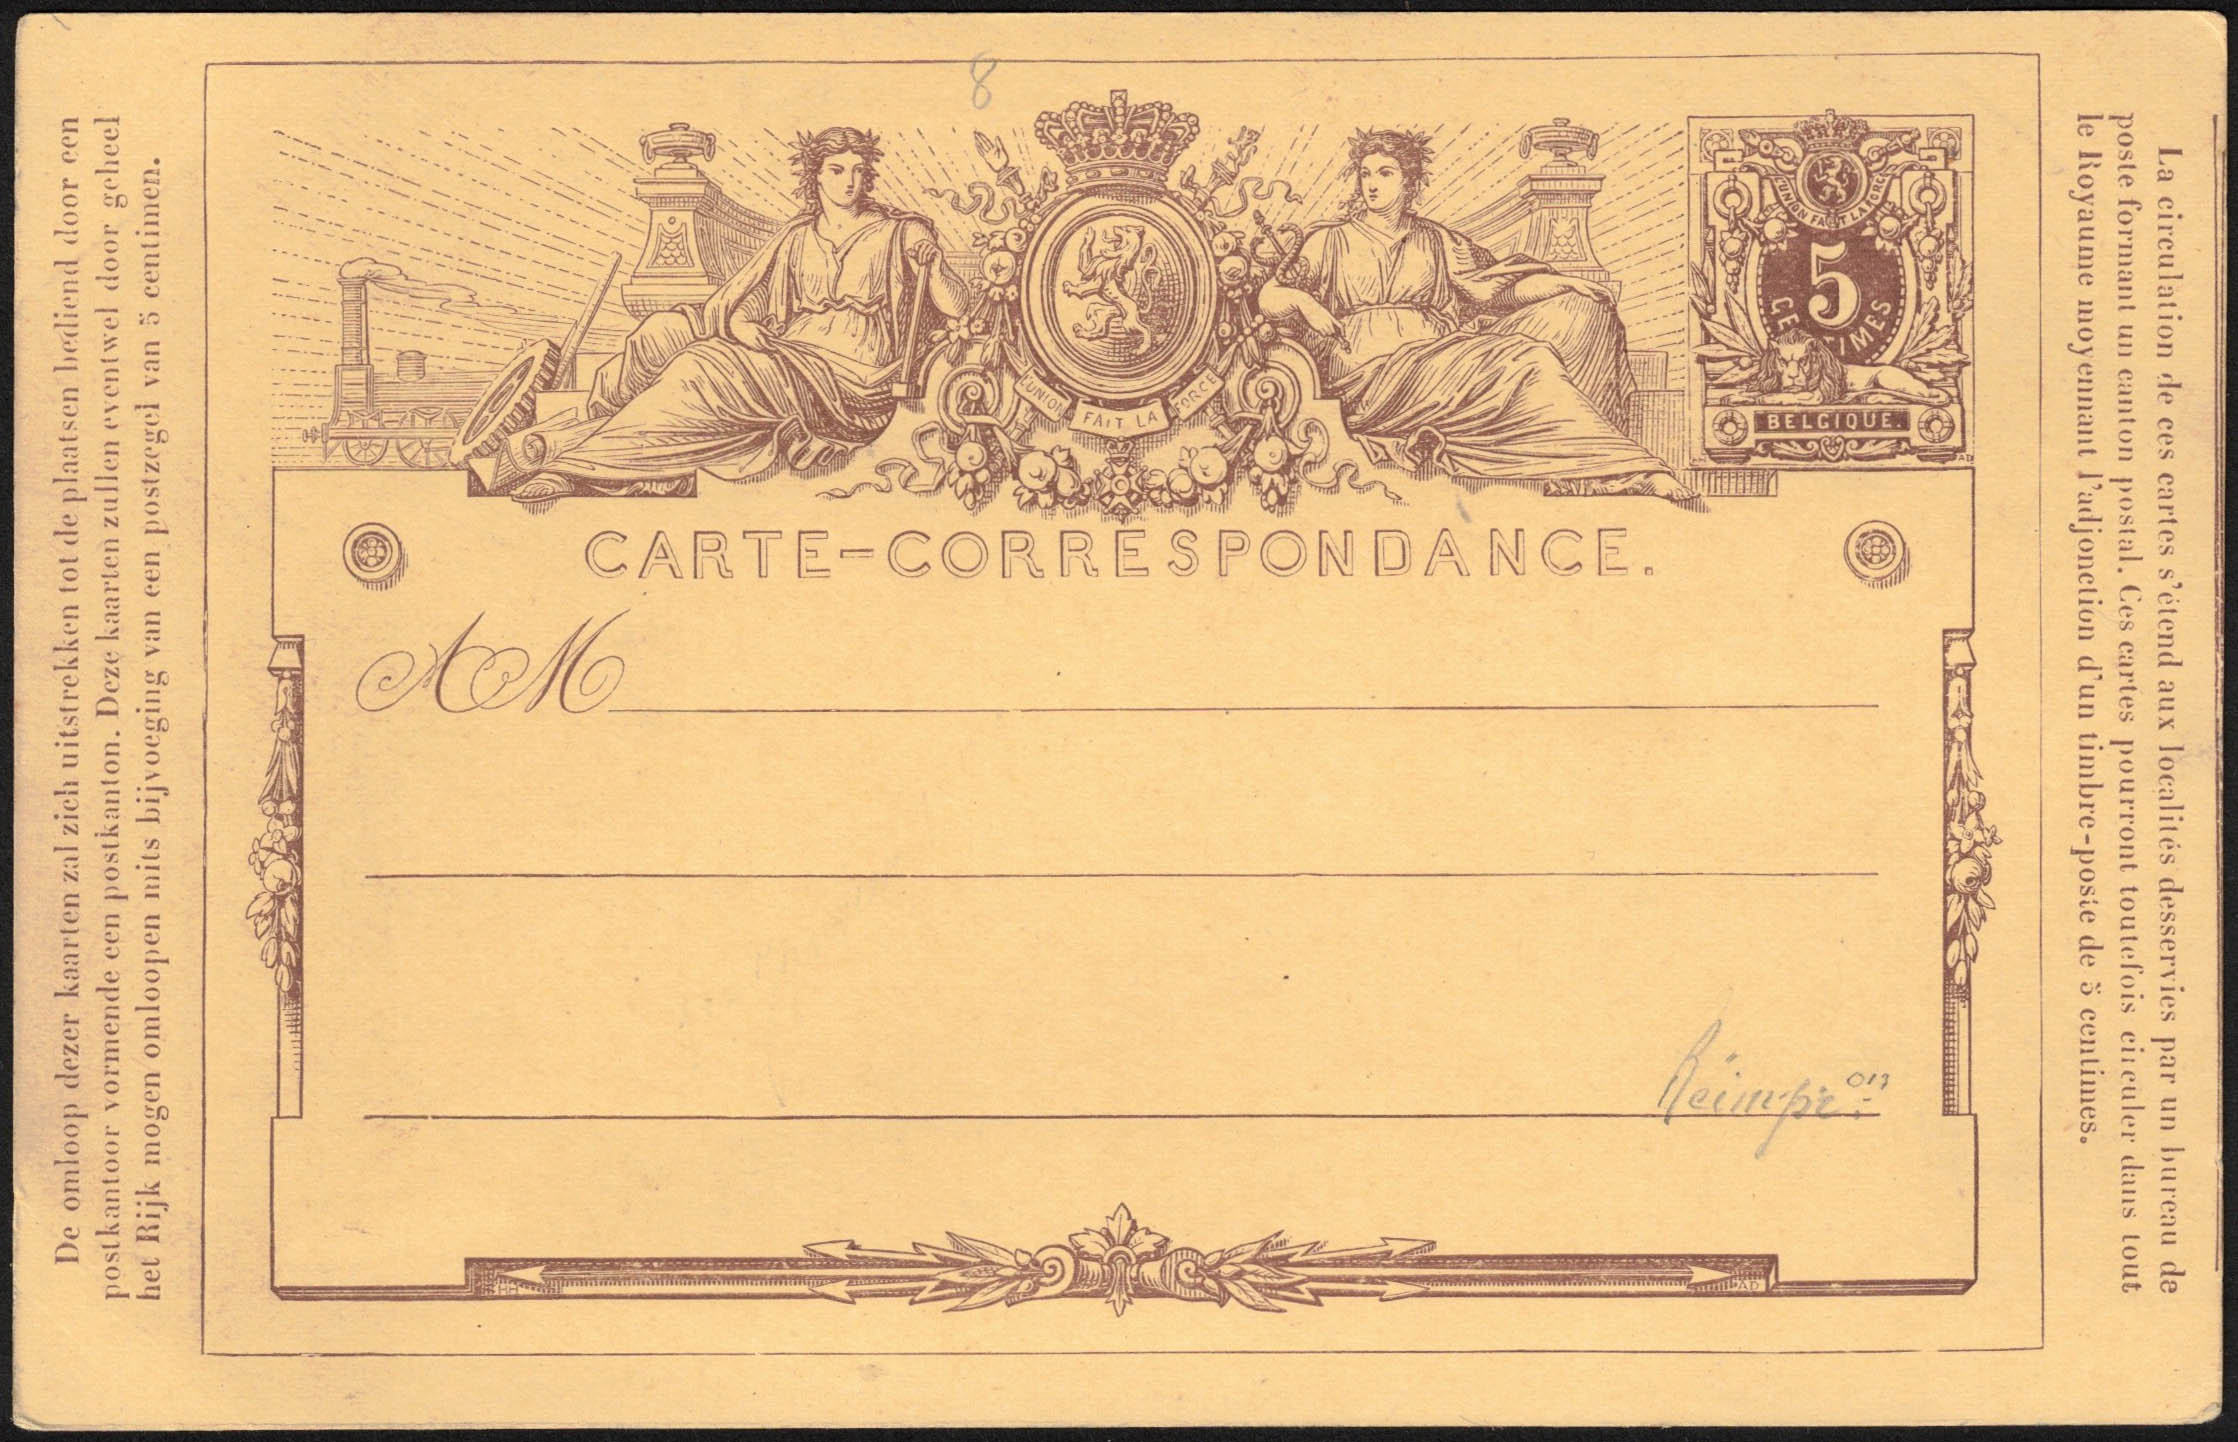 8
L'UNION FAIT LA FORCE
L'UNION FAIT LA FORCE
5
CENTIMES
BELGIQUE.
CARTE-CORRESPONDANCE.
A M
Réimpr
on
HH
AD
De omloop dezer kaarten zal zich uitstrekken tot de plaatsen bediend door een
postkantoor vormende een postkanton. Deze kaarten zullen eventwel door geheel
het Rijk mogen omloopen mits bijvoeging van een postzegel van 5 centimen.
La circulation de ces cartes s'étend aux localités desservies par un bureau de
poste formant un canton postal. Ces cartes pourront toutefois circuler dans tout
le Royaume moyennant l'adjonction d'un timbre-poste de 5 centimes.